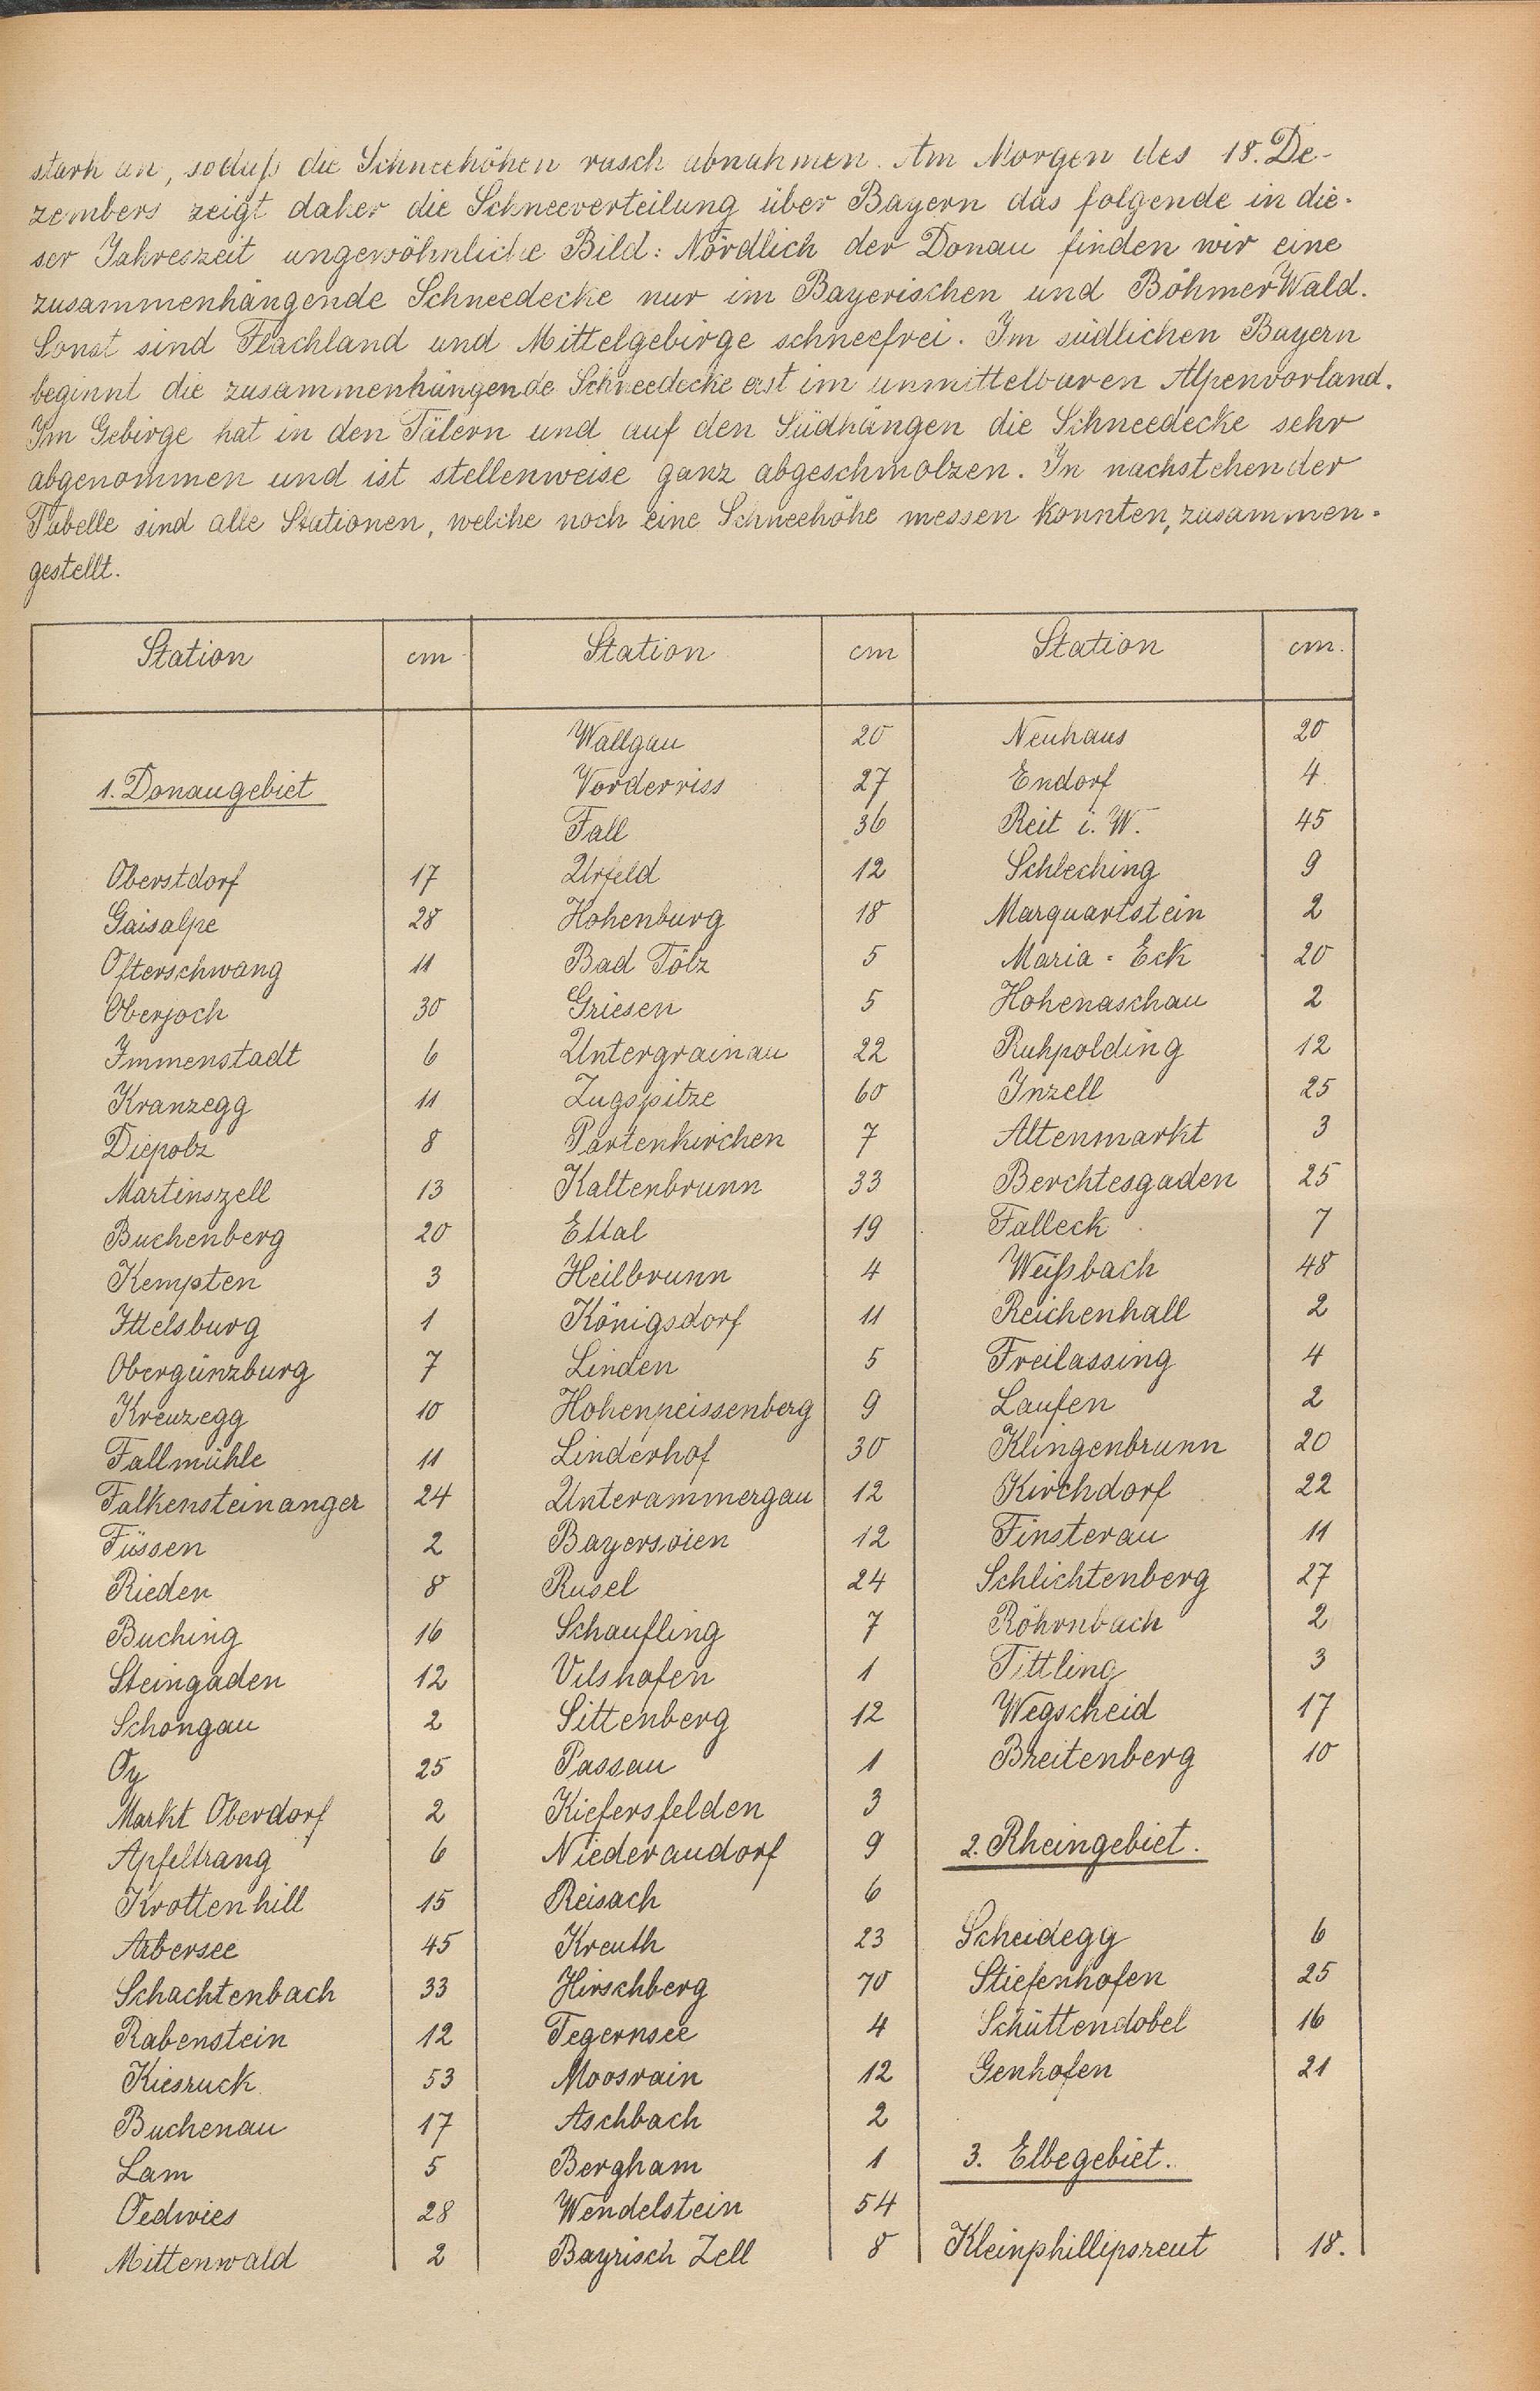 stark an, sodaß die Schneehöhen rasch abnahmen. Am Morgen des 18. De-
zembers zeigt daher die Schneeverteilung über Bayern das folgende in die-
ser Jahreszeit ungewöhnliche Bild: Nördlich der Donau finden wir eine
zusammenhängende Schneedecke nur im Bayerischen und Böhmer Wald.
Sonst sind Flachland und Mittelgebirge schneefrei. Im südlichen Bayern
beginnt die zusammenhängende Schneedecke erst im unmittelbaren Alpenvorland.
Im Gebirge hat in den Tälern und auf den Südhängen die Schneedecke sehr
abgenommen und ist stellenweise ganz abgeschmolzen. In nachstehender
Tabelle sind alle Stationen, welche noch eine Schneehöhe messen konnten, zusammen-
gestellt.
Station cm Station cm Station cm.
1. Donaugebiet
Oberstdorf 17
Gaisalpe 28
Ofterschwang 11
Oberjoch 30
Immenstadt 6
Kranzegg 11
Diepolz 8
Martinszell 13
Buchenberg 20
Kempten 3
Ittelsburg 1
Obergünzburg 7
Kreuzegg 10
Fallmühle 11
Falkensteinanger 24
Füssen 2
Rieden 8
Buching 16
Steingaden 12
Schongau 2
Oy 25
Markt Oberdorf 2
Apfeltrang 6
Krottenhill 15
Arbersee 45
Schachtenbach 33
Rabenstein 12
Kiesruck 53
Buchenau 17
Lam 5
Oedwies 28
Mittenwald 2
Wallgau 20
Vorderriss 27
Fall 36
Urfeld 12
Hohenburg 18
Bad Tölz 5
Griesen 5
Untergrainau 22
Zugspitze 60
Partenkirchen 7
Kaltenbrunn 33
Ettal 19
Heilbrunn 4
Königsdorf 11
Linden 5
Hohenpeissenberg 9
Linderhof 30
Unterammergau 12
Bayersoien 12
Rusel 24
Schaufling 7
Vilshofen 1
Sittenberg 12
Passau 1
Kiefersfelden 3
Niederaudorf 9
Reisach 6
Kreuth 23
Hirschberg 70
Tegernsee 4
Moosrain 12
Aschbach 2
Bergham 1
Wendelstein 54
Bayrisch Zell 8
Neuhaus 20
Endorf 4
Reit i. W. 45
Schleching 9
Marquartstein 2
Maria-Eck 20
Hohenaschau 2
Ruhpolding 12
Inzell 25
Altenmarkt 3
Berchtesgaden 25
Falleck 7
Weißbach 48
Reichenhall 2
Freilassing 4
Laufen 2
Klingenbrunn 20
Kirchdorf 22
Finsterau 11
Schlichtenberg 27
Röhrnbach 2
Tittling 3
Wegscheid 17
Breitenberg 10
2. Rheingebiet.
Scheidegg 6
Stiefenhofen 25
Schüttendobel 16
Genhofen 21
3. Elbegebiet.
Kleinphillipsreut 18.